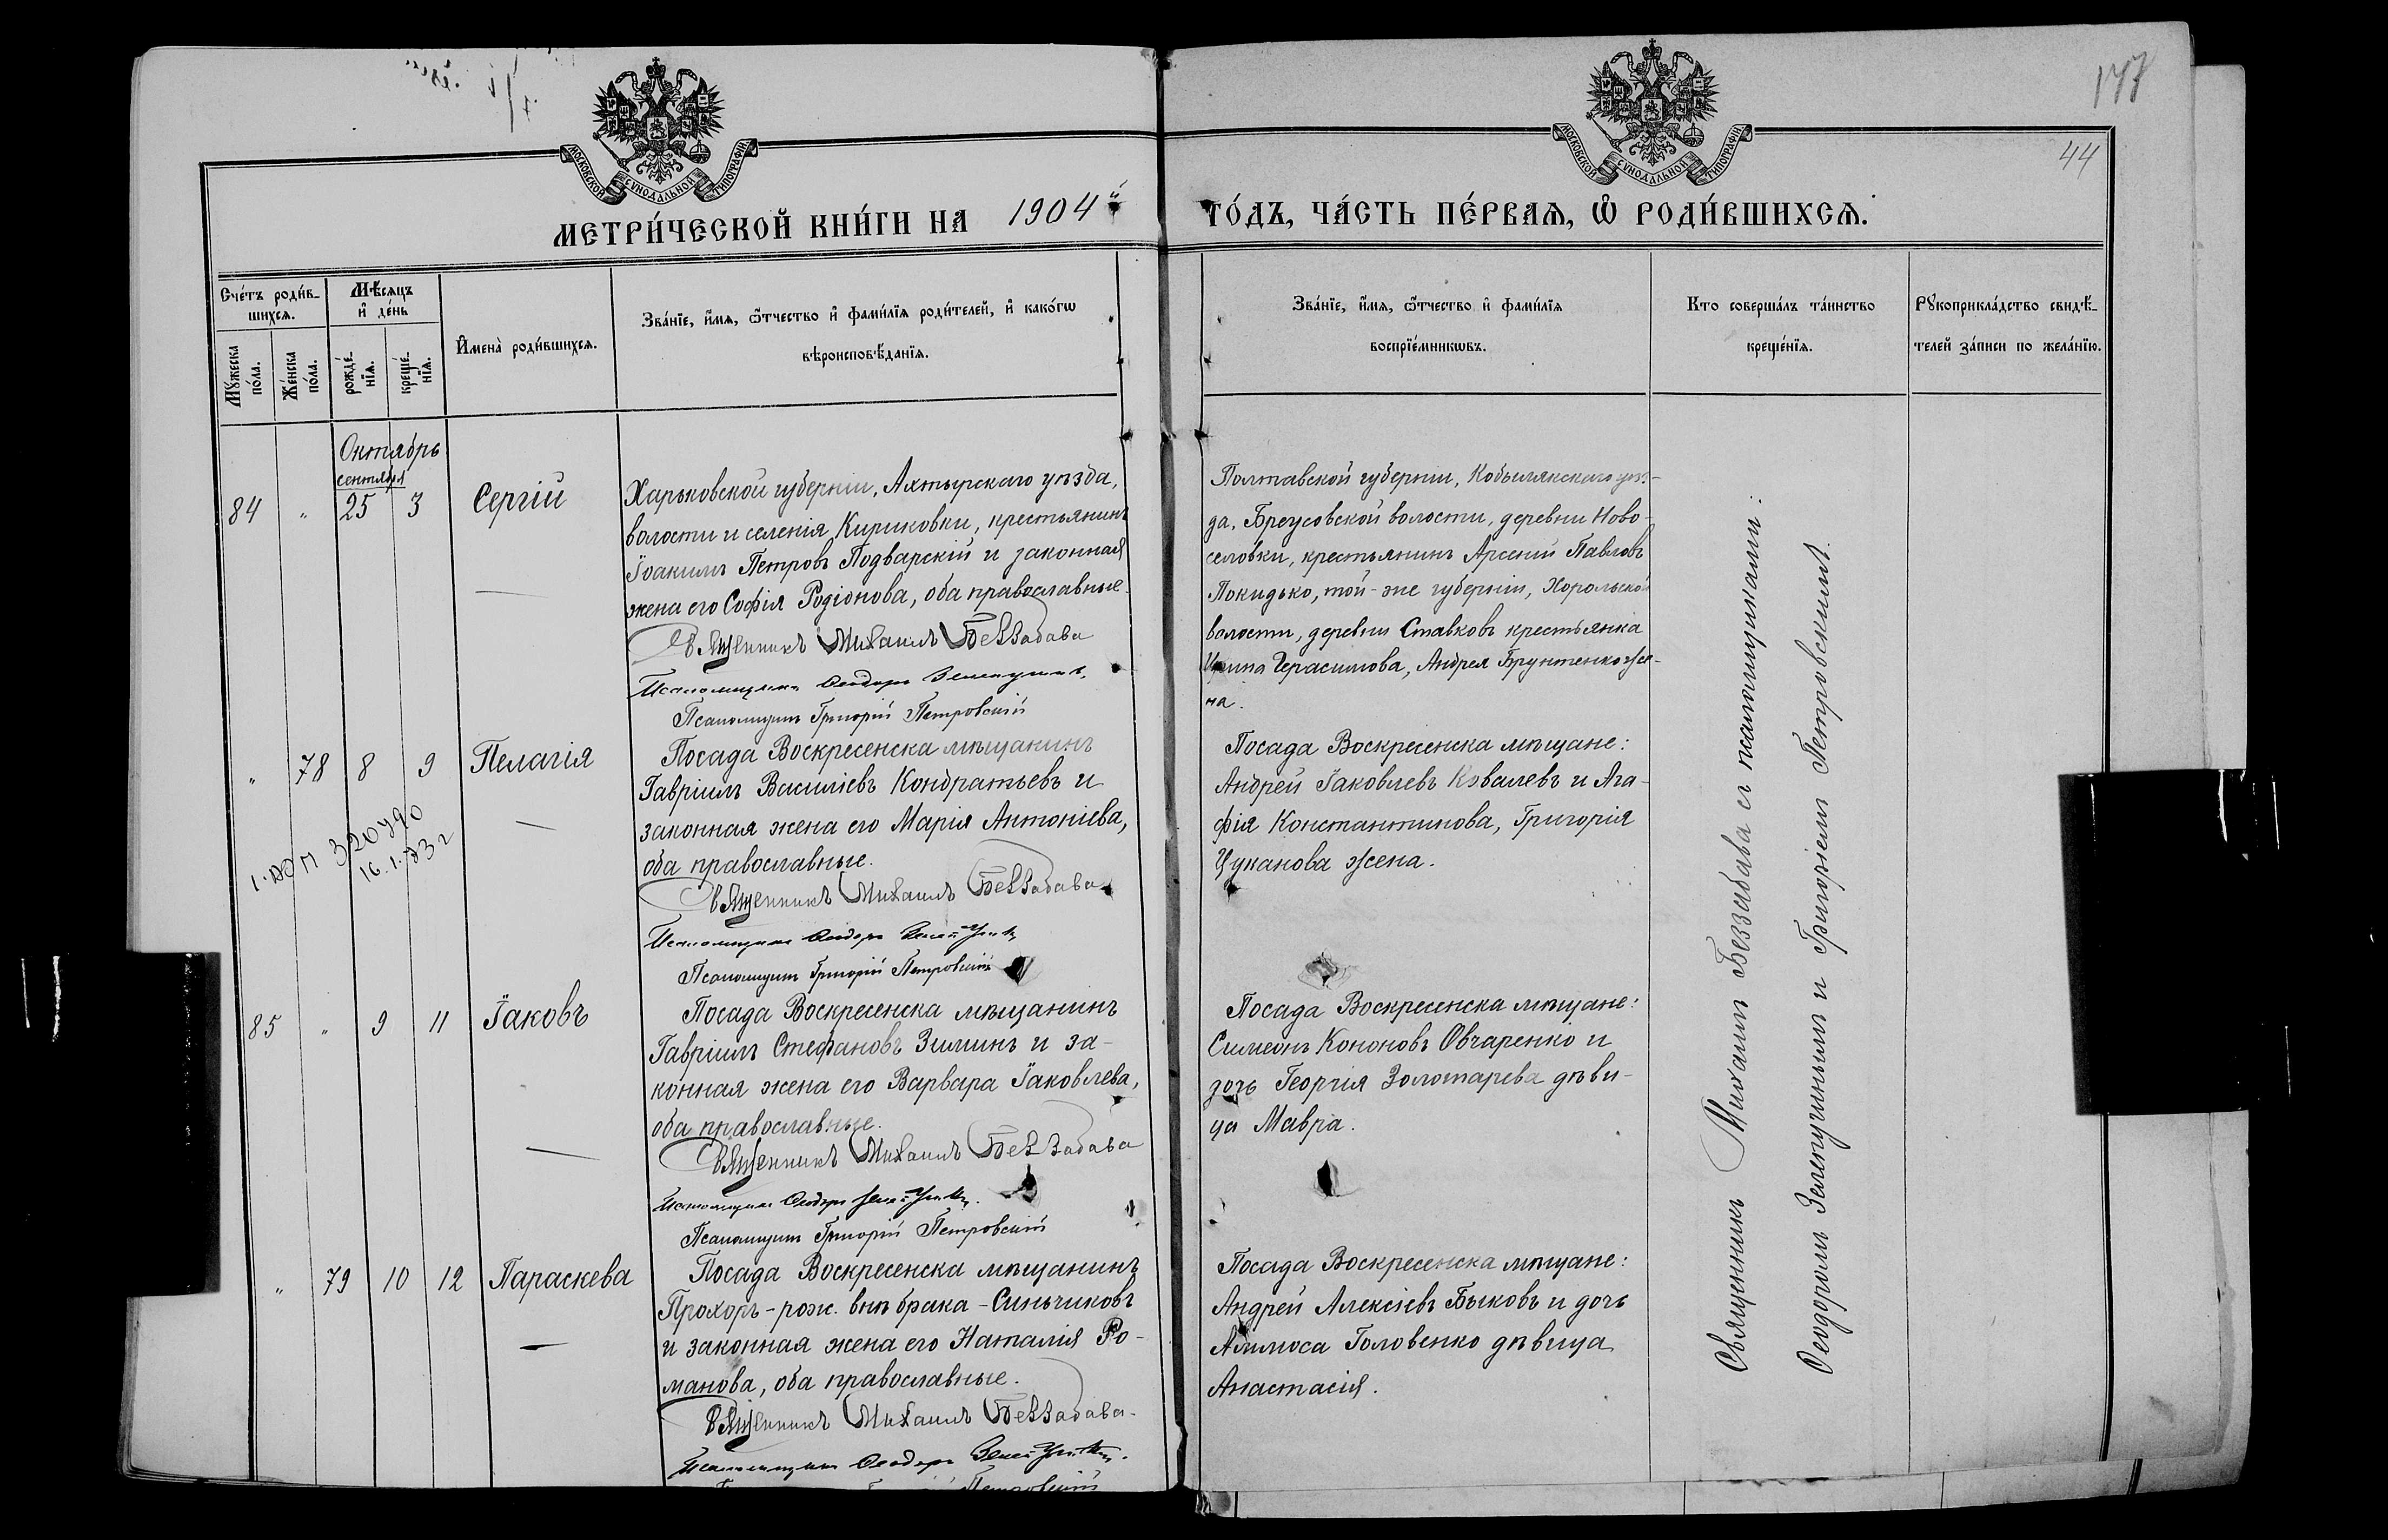 177
44
МОСКОВСКОЙ СУНОДАЛЬНОЙ ТИПОГРАФІИ
МОСКОВСКОЙ СУНОДАЛЬНОЙ ТИПОГРАФІИ
МЕТРИ́ЧЕСКОЙ КНИ́ГИ НА 1904й
ГО́ДЪ, ЧА́СТЬ ПЕ́РВАѦ, Ѿ РОДИ́ВШИХСѦ.
Сче́тъ роди́в-
шихсѧ.
Мꙋ́жеска по́ла.
Же́нска по́ла.
Мѣ́сѧцъ
и҆ де́нь
рожде́-
нїѧ.
креще́-
нїѧ.
И҆мена̀ роди́вшихсѧ.
Зва́нїе, и҆́мѧ, ѻ҆́тчество и҆ фами́лїѧ роди́телей, и҆ како́гѡ
вѣроисповѣ́данїѧ.
Зва́нїе, и҆́мѧ, ѻ҆́тчество и҆ фами́лїѧ
воспрїе́мникѡвъ.
Кто соверша́лъ та́инство
креще́нїѧ.
Рꙋкоприкла́дство свидѣ́-
телей за́писи по жела́нїю.
Октябрь
сентября
84 " 25 3 Сергій
Харьковской губерніи, Ахтырскаго уѣзда,
волости и селенія Кириковки, крестьянинъ
Іоакимъ Петровъ Подварскій и законная
жена его Софія Родіонова, оба православные.
Священникъ Михаилъ Беззабава
Псаломщикъ Ѳеодоръ
Псаломщикъ Григорій Петровскій
Полтавской губерніи, Кобылякскаго уѣз-
да, Бреусовской волости, деревни Ново-
селовки, крестьянинъ Арсеній Павловъ
Покидько, той-же губерніи, Хорольской
волости, деревни Ставковъ крестьянка
Ирина Герасимова, Андрея Брунтенко же-
на.
" 78 8 9 Пелагія
Посада Воскресенска мѣщанинъ
Гавріилъ Василіевъ Кондратьевъ и
законная жена его Марія Антоніева,
оба православные.
Священникъ Михаилъ Беззабава
Псаломщикъ Ѳеодоръ
Псаломщикъ Григорій Петровскій
Посада Воскресенска мѣщане:
Андрей Іаковлевъ Ковалевъ и Ага-
фія Константинова, Григорія
Цуканова жена.
320790
16.1.
85 " 9 11 Іаковъ
Посада Воскресенска мѣщанинъ
Гавріилъ Стефановъ Зиминъ и за-
конная жена его Варвара Іаковлева,
оба православные.
Священникъ Михаилъ Беззабава
Псаломщикъ Ѳеодоръ
Псаломщикъ Григорій Петровскій
Посада Воскресенска мѣщане:
Симеонъ Кононовъ Овчаренко и
дочь Георгія Золотарева дѣви-
ца Мавра.
" 79 10 12 Параскева
Посада Воскресенска мѣщанинъ
Прохоръ-рож. внѣ брака-Синьчиковъ
и законная жена его Наталія Ро-
манова, оба православные.
Священникъ Михаилъ Беззабава
Псаломщикъ Ѳеодоръ
Петровскій
Посада Воскресенска мѣщане:
Андрей Алексіевъ Быковъ и дочь
Аммоса Головенко дѣвица
Анастасія.
Священникъ Михаилъ Беззабава съ псаломщиками:
Ѳеодоромъ Зеленушнымъ и Григоріемъ Петровскимъ.